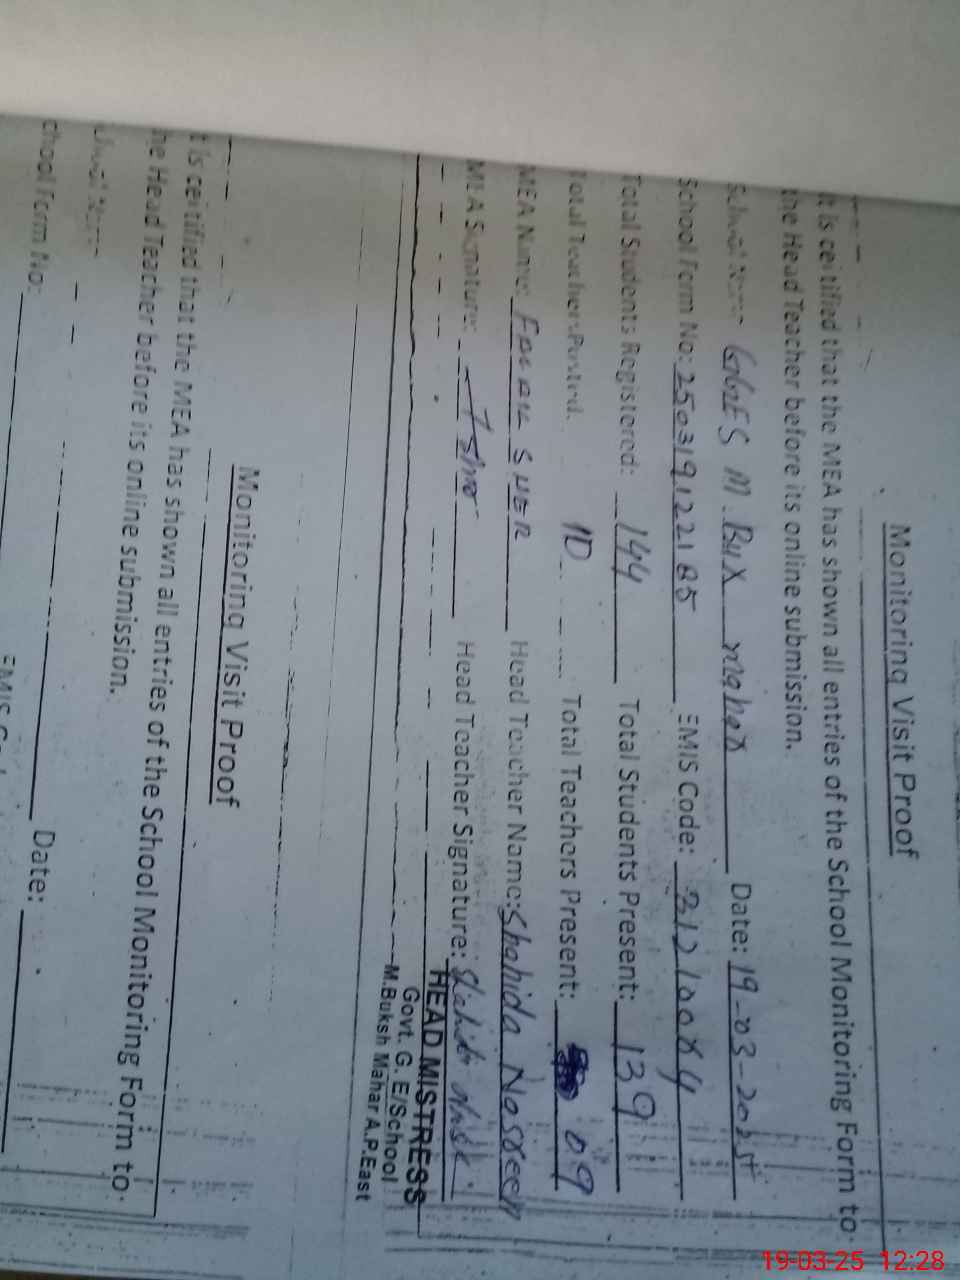 Monitoring Visit Proof
It is certified that the MEA has shown all entries of the School Monitoring Form to
the Head Teacher before its online submission.
School Name M. Bux mahar Date: 19-03-2025
School Form No: EMIS Code:
Total Students Registered: 144 Total Students Present: 139
Total Teachers Posted: 10 Total Teachers Present: 09
MEA Name: SHER Head Teacher Name: Shahida Nasreen
MEA Signature: Head Teacher Signature:
HEAD MISTRESS
Govt. G. E/School
M.Buksh Mahar A.P.East
Monitoring Visit Proof
t is certified that the MEA has shown all entries of the School Monitoring Form to
he Head Teacher before its online submission.
Date:
chool Form No:
19-03-25 12:28